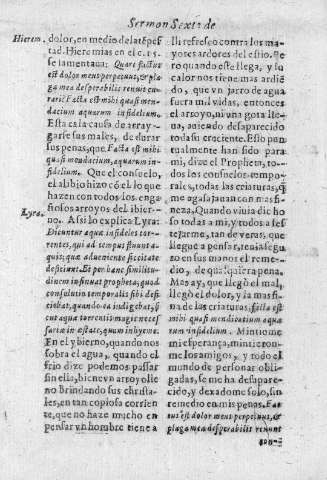 Sermon Sexto de
Hierem.
dolor, en medio de la tẽpes
tad. Hieremias en el c.15.
se lamentaua: Quare factus
est dolor meus perpetuus, & pla
ga mea desperabilis renuit cu-
rari? Facta est mihi quasi men-
dacium aquarum infidelium.
Esta es la causa de array-
garse sus males, de durar
sus penas, que Facta est mihi
quasi mendacium, aquarum in-
fidelium. Que el consuelo,
el alibio hizo cõ el lo que
hazen con todos los enga
ñosos arroyos del ibier-
Lyra.
no. Assi lo explica Lyra:
Dicuntur aquæ infideles tor-
rentes, qui ad tempus fluunt a-
quis; quæ adueniente siccitate
deficiunt. Et per hanc similitu-
dinem insinuat propheta, quod
consulatio temporalis sibi defi
ciebat, quando ea indigebat, si
cut aqua torrentis magis neces
saria in æstate, quam in hyeme.
En el ybierno, quando nos
sobra el agua, quando el
frio dize podemos passar
sin ella, bien ey arroyo lle
no brindando sus christa-
les, en tan copiosa corriẽn
te, que no haze mucho en
pensar vn hombre tiene a
lli refresco contra los ma-
yores ardores del estio. Pe
ro quando este llega, y su
calor nos tiene mas ardiẽ
do, que vn jarro de agua
fuera mil vidas, entonces
el arroyo, ni vna gota lle-
ua, auiendo desaparecido
toda su creciente. Esso pun
tualmente han sido para
mi, dize el Propheta, to-
dos los consuelos tempo-
rales, todas las criaturas, q̃
me agasajauan con mas fi-
neza. Quando viuia dicho
so todas a mi, y todos a fes
tejarme, tan de veras, que
llegué a pensar, tenia segu
ro en sus manos el reme-
dio, de qualquiera pena.
Mas ay, que llegò el mal,
llegò el dolor, y la mas fi-
na de las criaturas, facta est
mihi quasi mendatium aqua
rum infidelium. Mintiome
mi esperança, mintieron-
me los amigos, y todo el
mundo de personas obli-
gadas, se me ha desapare-
cido, y dexadome solo, sin
remedio en mis penas. Fac
tus est dolor meus perpetuus, &
plaga mea desperabilis renuit